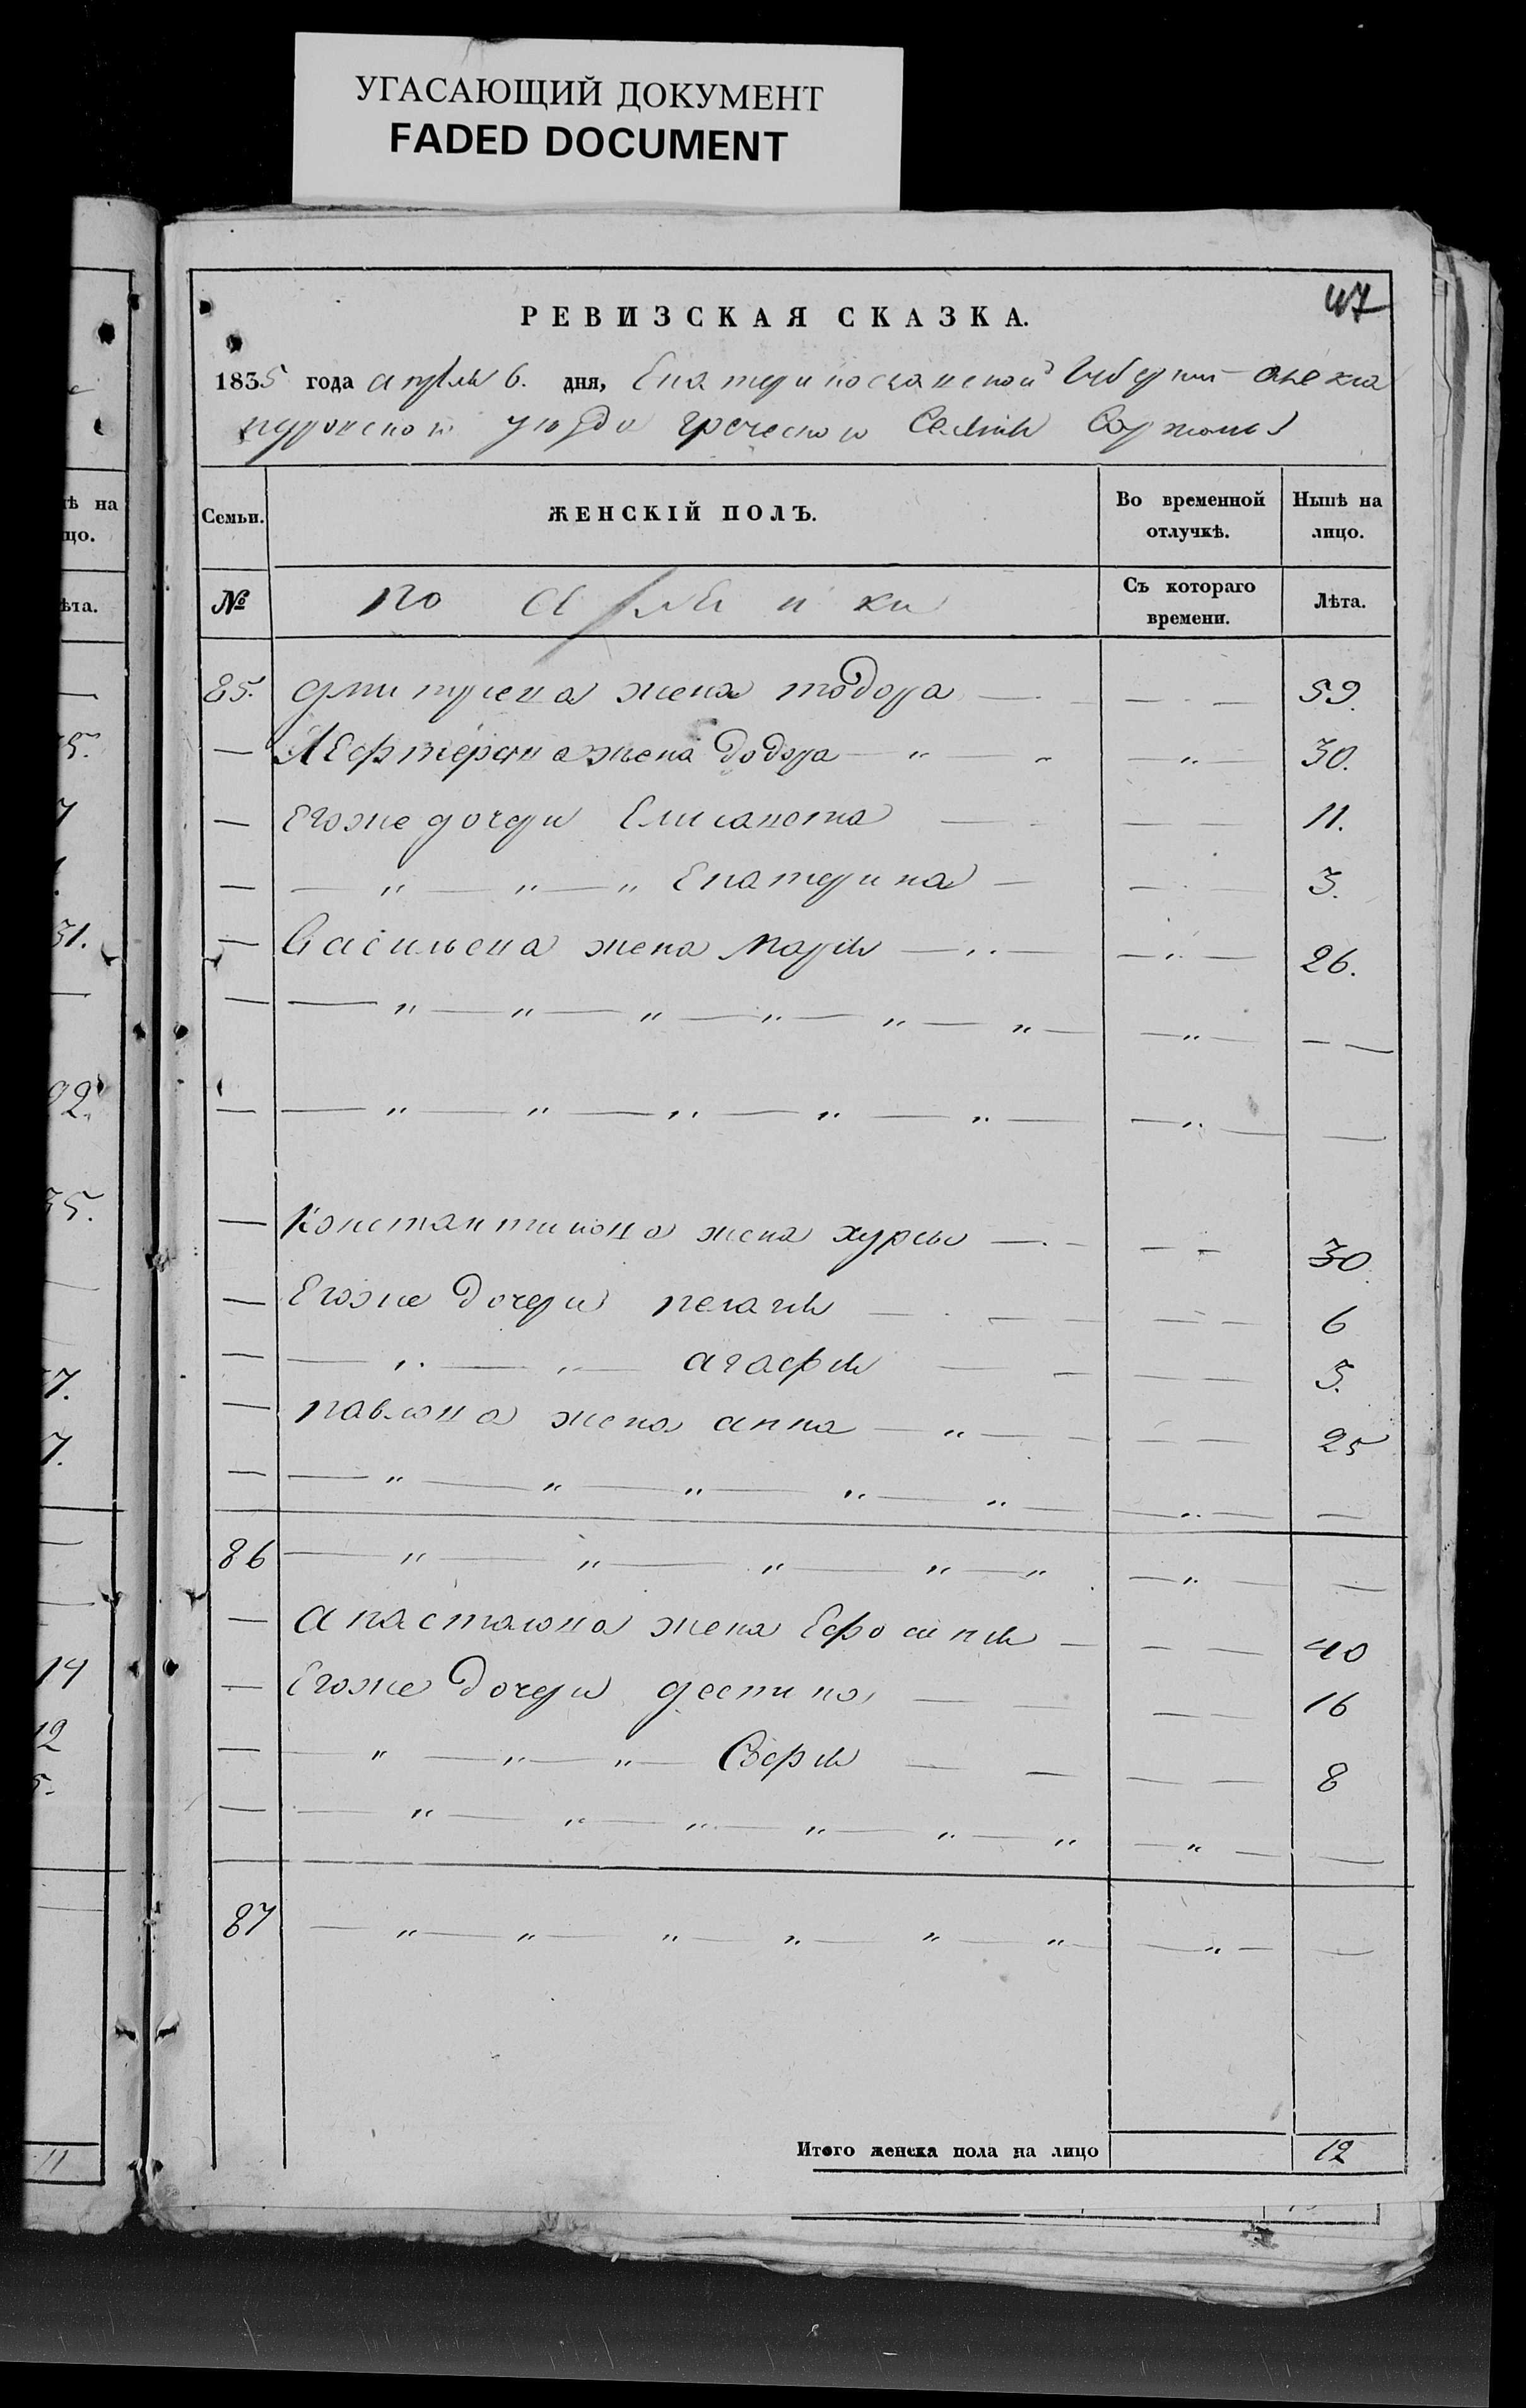 УГАСАЮЩИЙ ДОКУМЕНТ
FADED DOCUMENT
47
РЕВИЗСКАЯ СКАЗКА.
1835 года апреля 6. дня, Екатеринославской Губернии Алекса
ндровского уезда греческого Селения
Семьи. ЖЕНСКІЙ ПОЛЪ. Во временной отлучкѣ. Нынѣ на лицо.
№ Съ котораго времени. Лѣта.
85. Дмитриева жена тодора — 59.
— Лефтерова жена Додора — " — 30.
— Егоже дочери Елисавета — 11.
— " — " — " Екатерина — 3.
— Васильева жена Мария — 26.
— " — " — " — " — " — " — " —
— " — " — " — " — " — " —
— Константинова жена хурсы — 30
— Егоже дочери пелагия — 6
— " — " — агафия — 3.
— павлова жена анна — " — 25
— " — " — " — " — " — " —
86 — " — " — " — " — " — " —
— Анастасова жена Ефросиния — 40
— Егоже дочери деспина — 16
— " — " — " — София — 8
— " — " — " — " — " — " — " —
87 — " — " — " — " — " — " — " —
Итого женска пола на лицо 12
ѣ на
цо.
ѣта.
5.
7
31.
92.
35.
7.
7.
14
12
5.
11